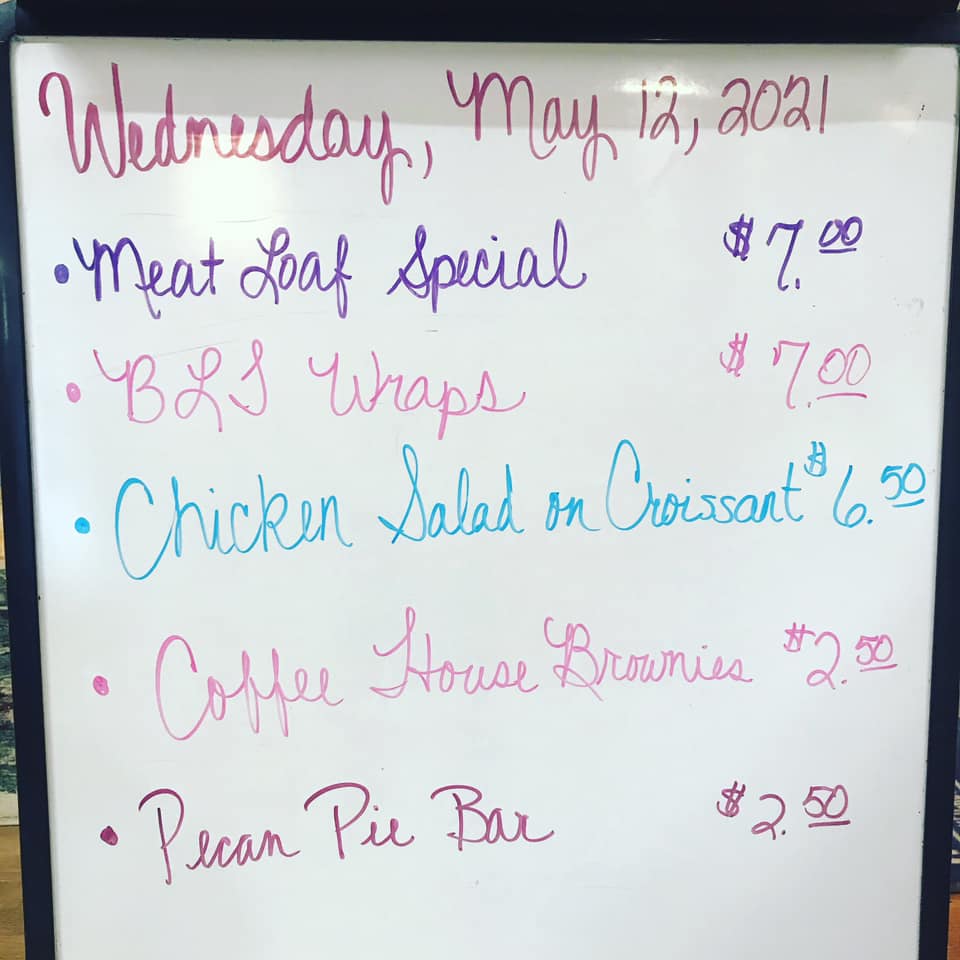 Wednesday, May 12, 2021
• Meat Loaf Special $7.00
• BLT Wraps $7.00
• Chicken Salad on Croissant $6.50
• Coffee House Brownies $2.50
• Pecan Pie Bar $2.50